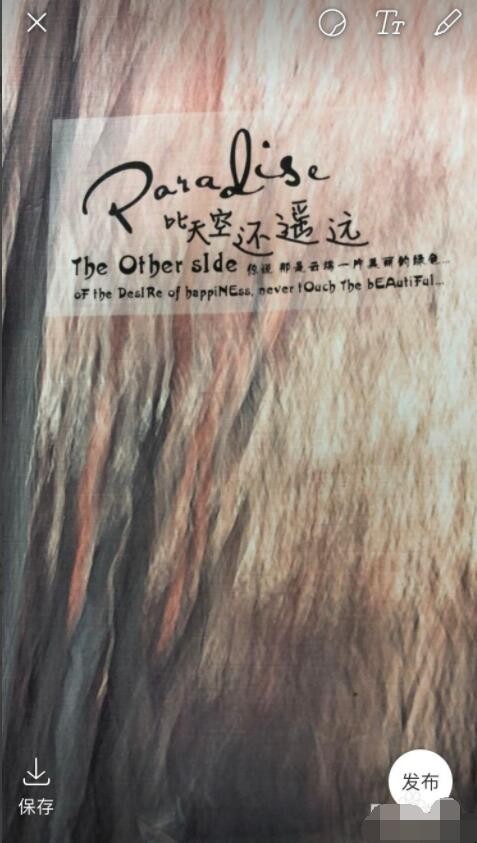 TT
Paradise
比天空还遥远
The Other sIde 你说 那是云端一片美丽的绿色...
oF the DesIRe of happiNEss, never tOuch The bEAutiFul...
发布
保存